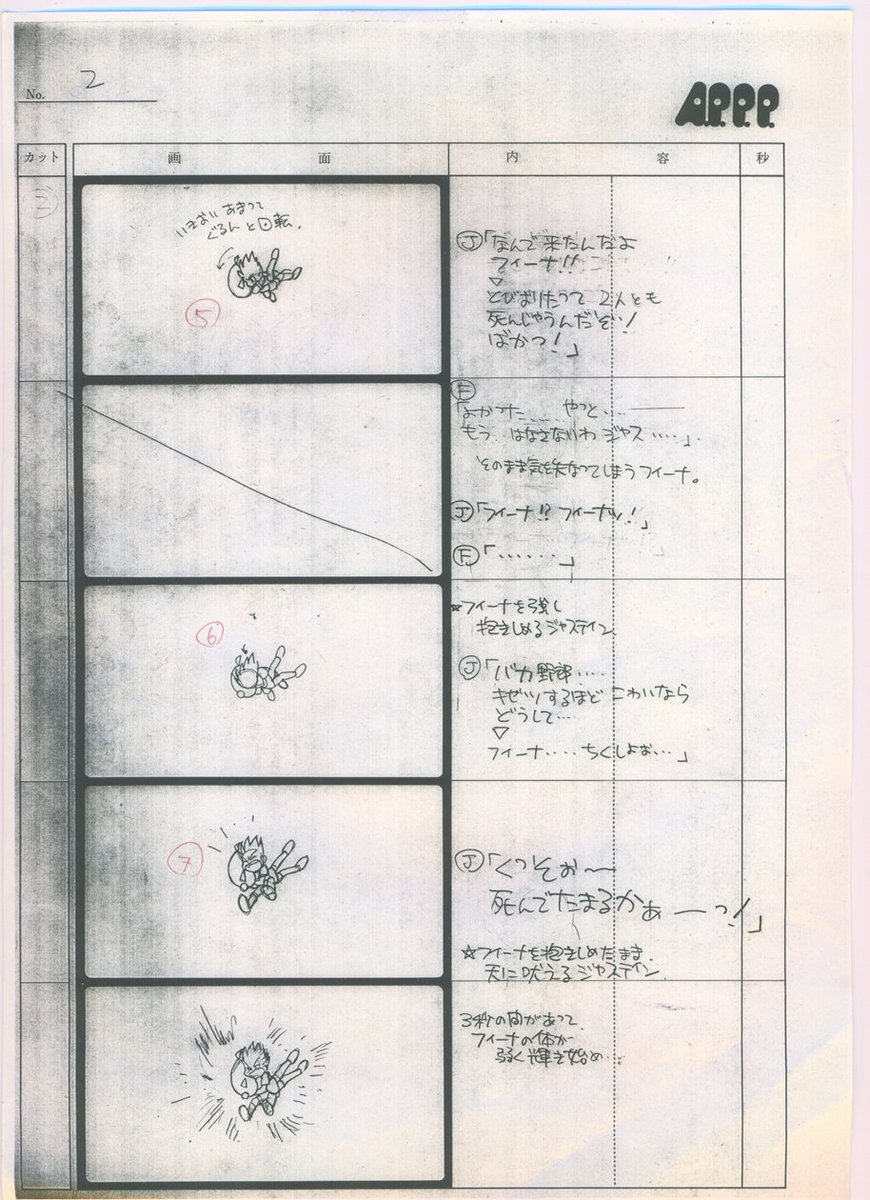 No. 2
A.P.P.P.
カット 画 面 内 容 秒
いきおいあまって
ぐるんと回転。
5
J「なんで来たんだよ
フィーナ!!
▽
とびおりたって 2人とも
死んじゃうんだぞ!
ばかっ!」
F
「よかった…… やっと…
もう、はなさないわ ジャス……」
そのまま気を失なってしまうフィーナ。
J「フィーナ!? フィーナッ!」
F「……」
6
☆フィーナを強く
抱きしめるジャスティン。
J「バカ野郎……
キゼツするほど こわいなら
どうして…
▽
フィーナ……ちくしょお…」
7
J「くっそぉ〜
死んでたまるかぁーっ!」
☆フィーナを抱きしめたまま、
天に吠えるジャスティン。
3秒の間があって、
フィーナの体が
弱く輝き始め…。